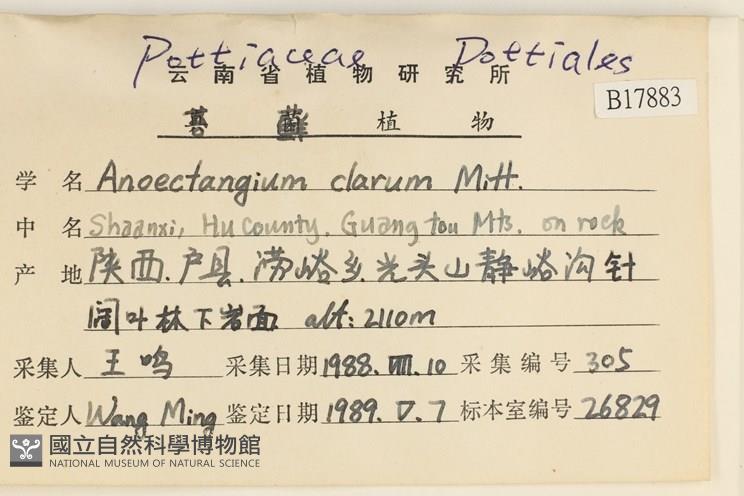 Pottiaceae Pottiales
云南省植物研究所
B17883
苔藓植物
学名 Anoectangium clarum Mitt.
中名 Shaanxi, Hu county. Guang tou Mts. on rock
产地 陕西.户县.涝峪乡.光头山静峪沟针
阔叶林下岩面 alt: 2110m
采集人 王鸣 采集日期 1988.Ⅷ.10 采集编号 305
鉴定人 Wang Ming 鉴定日期 1989.Ⅴ.7 标本室编号 26829
國立自然科學博物館
NATIONAL MUSEUM OF NATURAL SCIENCE